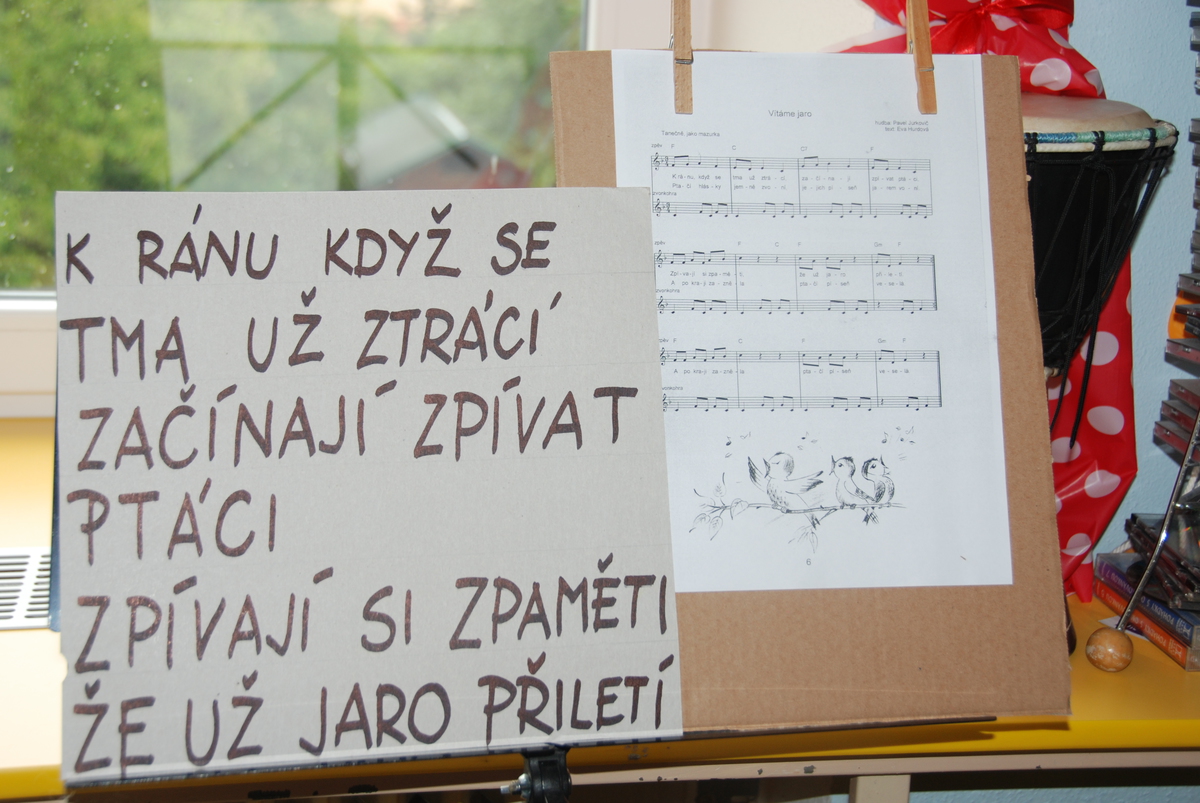 K RÁNU KDYŽ SE
TMA UŽ ZTRÁCÍ
ZAČÍNAJÍ ZPÍVAT
PTÁCI
ZPÍVAJÍ SI ZPAMĚTI
ŽE UŽ JARO PŘILETÍ
Vítáme jaro
hudba: Pavel Jurkovič
text: Eva Hurdová
Tanečně, jako mazurka
zpěv F C C7 F
K rá - nu, když se tma už ztrá - cí, za - čí - na - jí zpí - vat ptá - ci.
Ptá - či hlás - ky jem - ně zvo - ní, je - jich pí - seň
zvonkohra
zpěv F C F Gm F
Zpí - va - jí si zpa - mě - ti, že už ja - ro při - le - tí.
A po kra - ji za - zně - lá ptá - čí pí - seň ve - se - lá.
zvonkohra
zpěv F C F Gm F
A po kra - ji za - zně - lá ptá - čí pí - seň ve - se - lá.
zvonkohra
6